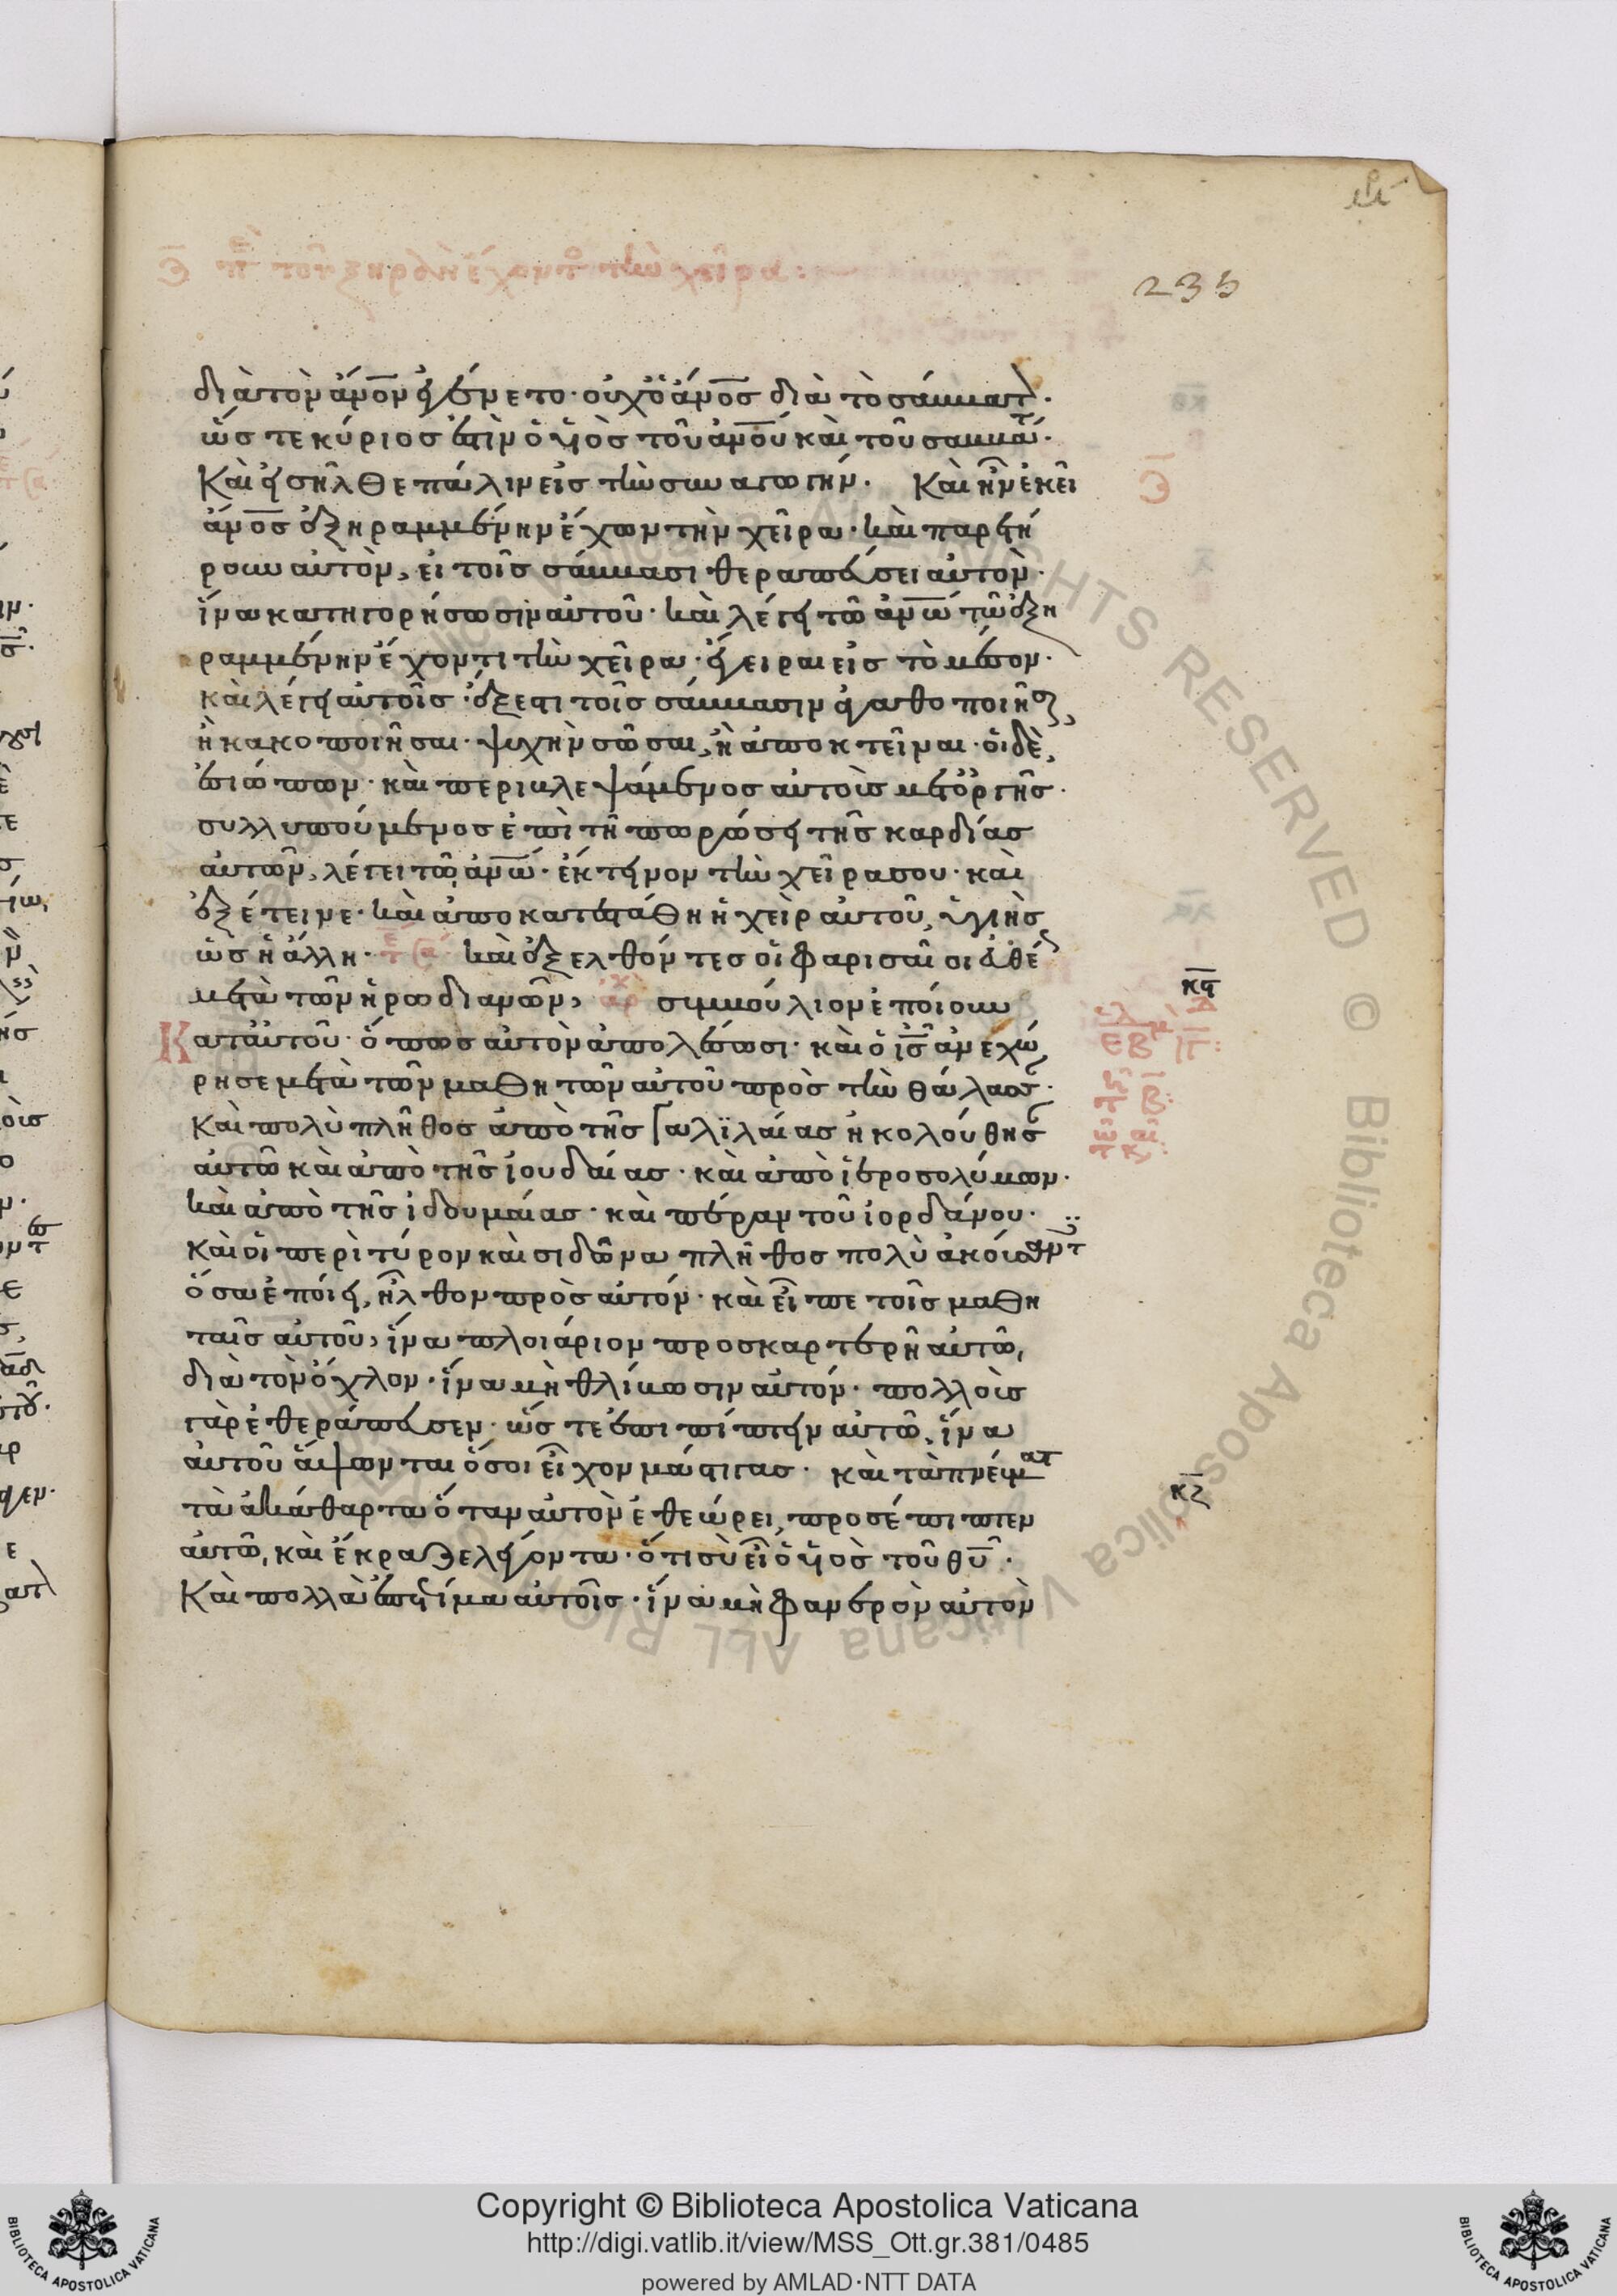 Ε πε τοῦ ξηρὰν ἔχοντος τὴν χεῖρα:
235
διὰ τὸν ἄνον ἐγένετο· οὐχ ὁ ἄνος διὰ τὸ σάββατ·
ὥστε κύριος ἐστὶν ὁ υἱὸς τοῦ ἀνου καὶ τοῦ σαββάτ·
Καὶ εἰσῆλθε πάλιν εἰς τὴν συναγωγήν. Καὶ ἦν ἐκεῖ
ἄνος ἐξηραμμένην ἔχων τὴν χεῖρα· καὶ παρετή
ρουν αὐτὸν, εἰ τοῖς σάββασι θεραπεύσει αὐτὸν·
ἵνα κατηγορήσωσιν αὐτοῦ· καὶ λέγει τῶ ἀνω τῶ ἐξη
ραμμένην ἔχοντι τὴν χεῖρα· ἔγειραι εἰς τὸ μέσον·
καὶ λέγει αὐτοῖς· ἔξεστι τοῖς σάββασιν ἀγαθοποιῆσαι,
ἢ κακοποιῆσαι· ψυχὴν σῶσαι, ἢ ἀποκτεῖναι· οἱ δὲ,
ἐσιώπων· καὶ περιβλεψάμενος αὐτοὺς μετ ὀργῆς·
συλλυπούμενος ἐπὶ τῆ πωρώσει τῆς καρδίας
αὐτῶν, λέγει τῶ ἀνω· ἔκτεινον τὴν χεῖρα σου· καὶ
ἐξέτεινε· καὶ ἀποκατεστάθη ἡ χεὶρ αὐτοῦ, ὑγιὴς
ὡς ἡ ἄλλη· καὶ ἐξελθόντες οἱ φαρισαῖοι εὐθέ
μετὰ τῶν ἡρωδιανῶν, ἀρχ συμβούλιον ἐποίουν
Κατ αὐτοῦ· ὅπως αὐτὸν ἀπολέσωσι· καὶ ὁ ις ἀνεχώ
ρησε μετὰ τῶν μαθητῶν αὐτοῦ πρὸς τὴν θάλασ·
Καὶ πολὺ πλῆθος ἀπὸ τῆς Γαλιλαίας ἠκολούθησ
αὐτῶ καὶ ἀπὸ τῆς ἰουδαίας· καὶ ἀπὸ ἱεροσολύμων·
καὶ ἀπὸ τῆς ἰδουμαίας· καὶ πέραν τοῦ ἰορδάνου·
καὶ οἱ περὶ τύρον καὶ σιδῶνα πλῆθος πολὺ ἀκούσαντ
ὅσα ἐποίει, ἦλθον πρὸς αὐτόν· καὶ εἶπε τοῖς μαθη
ταῖς αὐτοῦ, ἵνα πλοιάριον προσκαρτερῆ αὐτῶ,
διὰ τὸν ὄχλον· ἵνα μὴ θλίβωσιν αὐτόν· πολλοὺς
γὰρ ἐθεράπευσεν· ὥστε ἐπιπίπτειν αὐτῶ, ἵνα
αὐτοῦ ἅψωνται ὅσοι εἶχον μάστιγας· καὶ τὰ πνεύματ
τὰ ἀκάθαρτα ὅταν αὐτὸν ἐθεώρει, προσέπιπτεν
αὐτῶ, καὶ ἔκραζε λέγοντα· ὅτι σὺ εἶ ὁ υἱὸς τοῦ θυ·
Καὶ πολλὰ ἐπετίμα αὐτοῖς· ἵνα μὴ φανερὸν αὐτὸν
Ε
κς
κζ
Copyright © Biblioteca Apostolica Vaticana
http://digi.vatlib.it/view/MSS_Ott.gr.381/0485
powered by AMLAD·NTT DATA
BIBLIOTECA APOSTOLICA VATICANA
BIBLIOTECA APOSTOLICA VATICANA